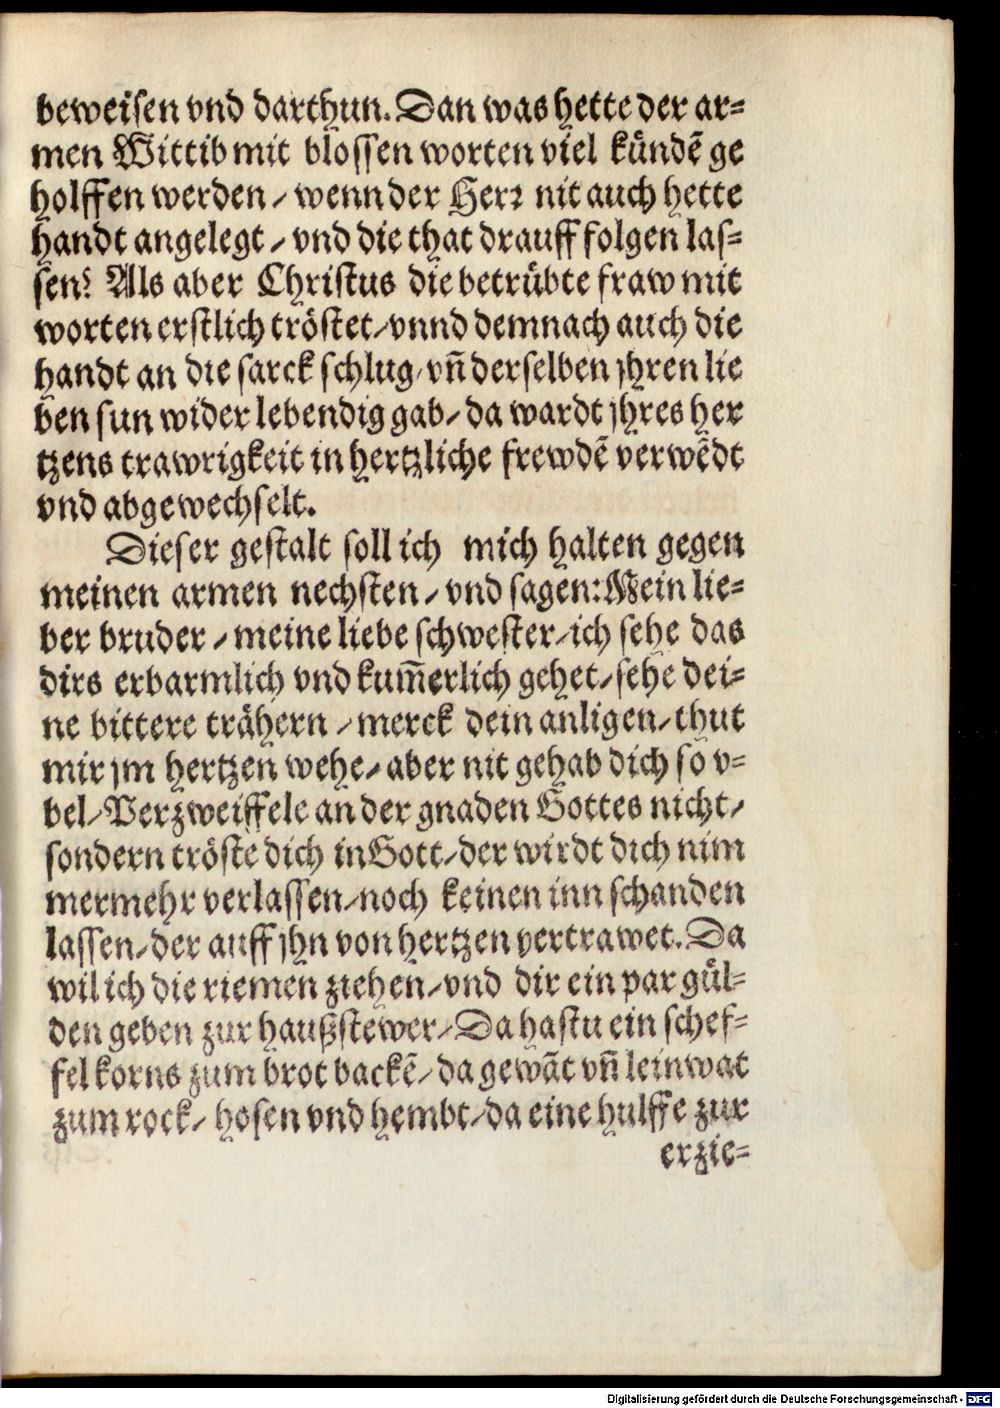 beweisen vnd darthun. Dan was hette der ar=
men Wittib mit blossen worten viel kündẽ ge
holffen werden / wenn der Herr nit auch hette
handt angelegt / vnd die that drauff folgen las=
sen? Als aber Christus die betrübte fraw mit
worten erstlich tröstet / vnnd demnach auch die
handt an die sarck schlug / vñ derselben jhren lie
ben sun wider lebendig gab / da wardt jhres her
tzens trawrigkeit in hertzliche frewdẽ verwẽdt
vnd abgewechselt.
Dieser gestalt soll ich mich halten gegen
meinen armen nechsten / vnd sagen: Mein lie=
ber bruder / meine liebe schwester / ich sehe das
dirs erbarmlich vnd kum̃erlich gehet / sehe dei=
ne bittere trähern / merck dein anligen / thut
mir jm hertzen wehe / aber nit gehab dich so v=
bel / Verzweiffele an der gnaden Gottes nicht /
sondern tröste dich in Gott / der wirdt dich nim
mermehr verlassen / noch keinen inn schanden
lassen / der auff jhn von hertzen vertrawet. Da
wil ich die riemen ziehen / vnd dir ein par gül=
den geben zur haußstewer / Da hastu ein schef=
fel korns zum brot backẽ / da gewãt vñ leinwat
zum rock / hosen vnd hembt / da eine hulffe zur
erzie=
Digitalisierung gefördert durch die Deutsche Forschungsgemeinschaft - DFG